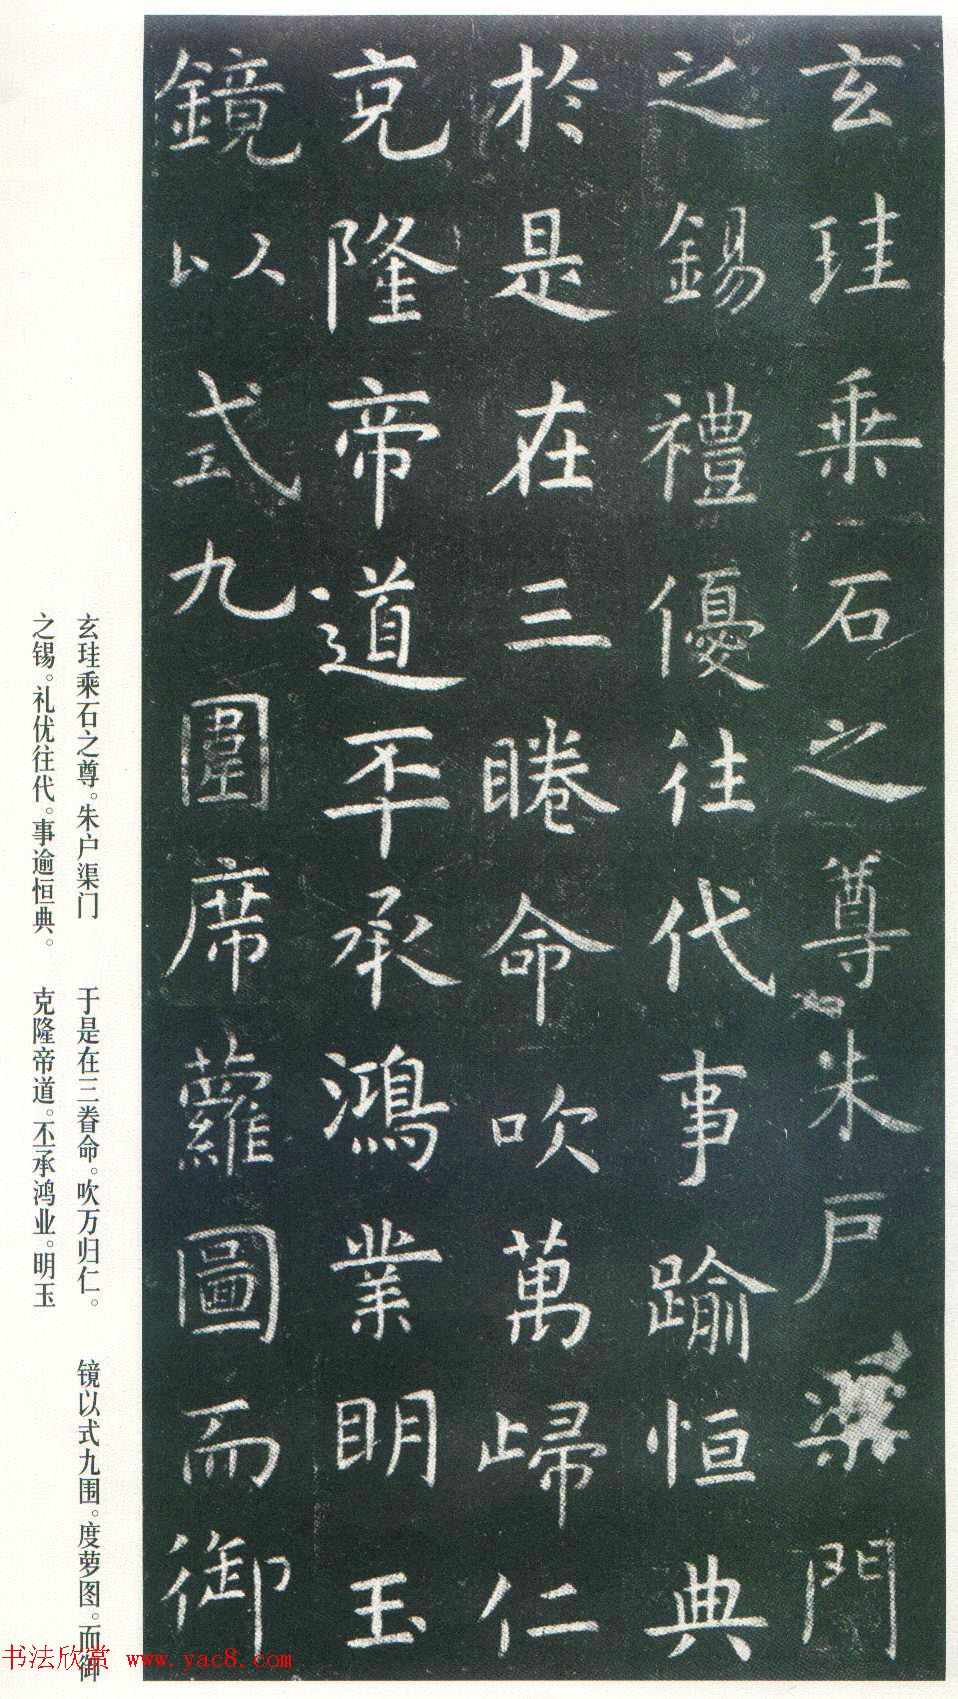 玄珪乗石之尊朱戶渠門
之錫禮優往代事踰恒典
於是在三睠命吹萬歸仁
克隆帝道丕承鴻業明玉
鏡以式九圍席蘿圖而御
玄珪乘石之尊。朱户渠门
之锡。礼优往代。事逾恒典。
于是在三眷命。吹万归仁。
克隆帝道。丕承鸿业。明玉
镜以式九围。度萝图。而御
书法欣赏 www.yac8.com